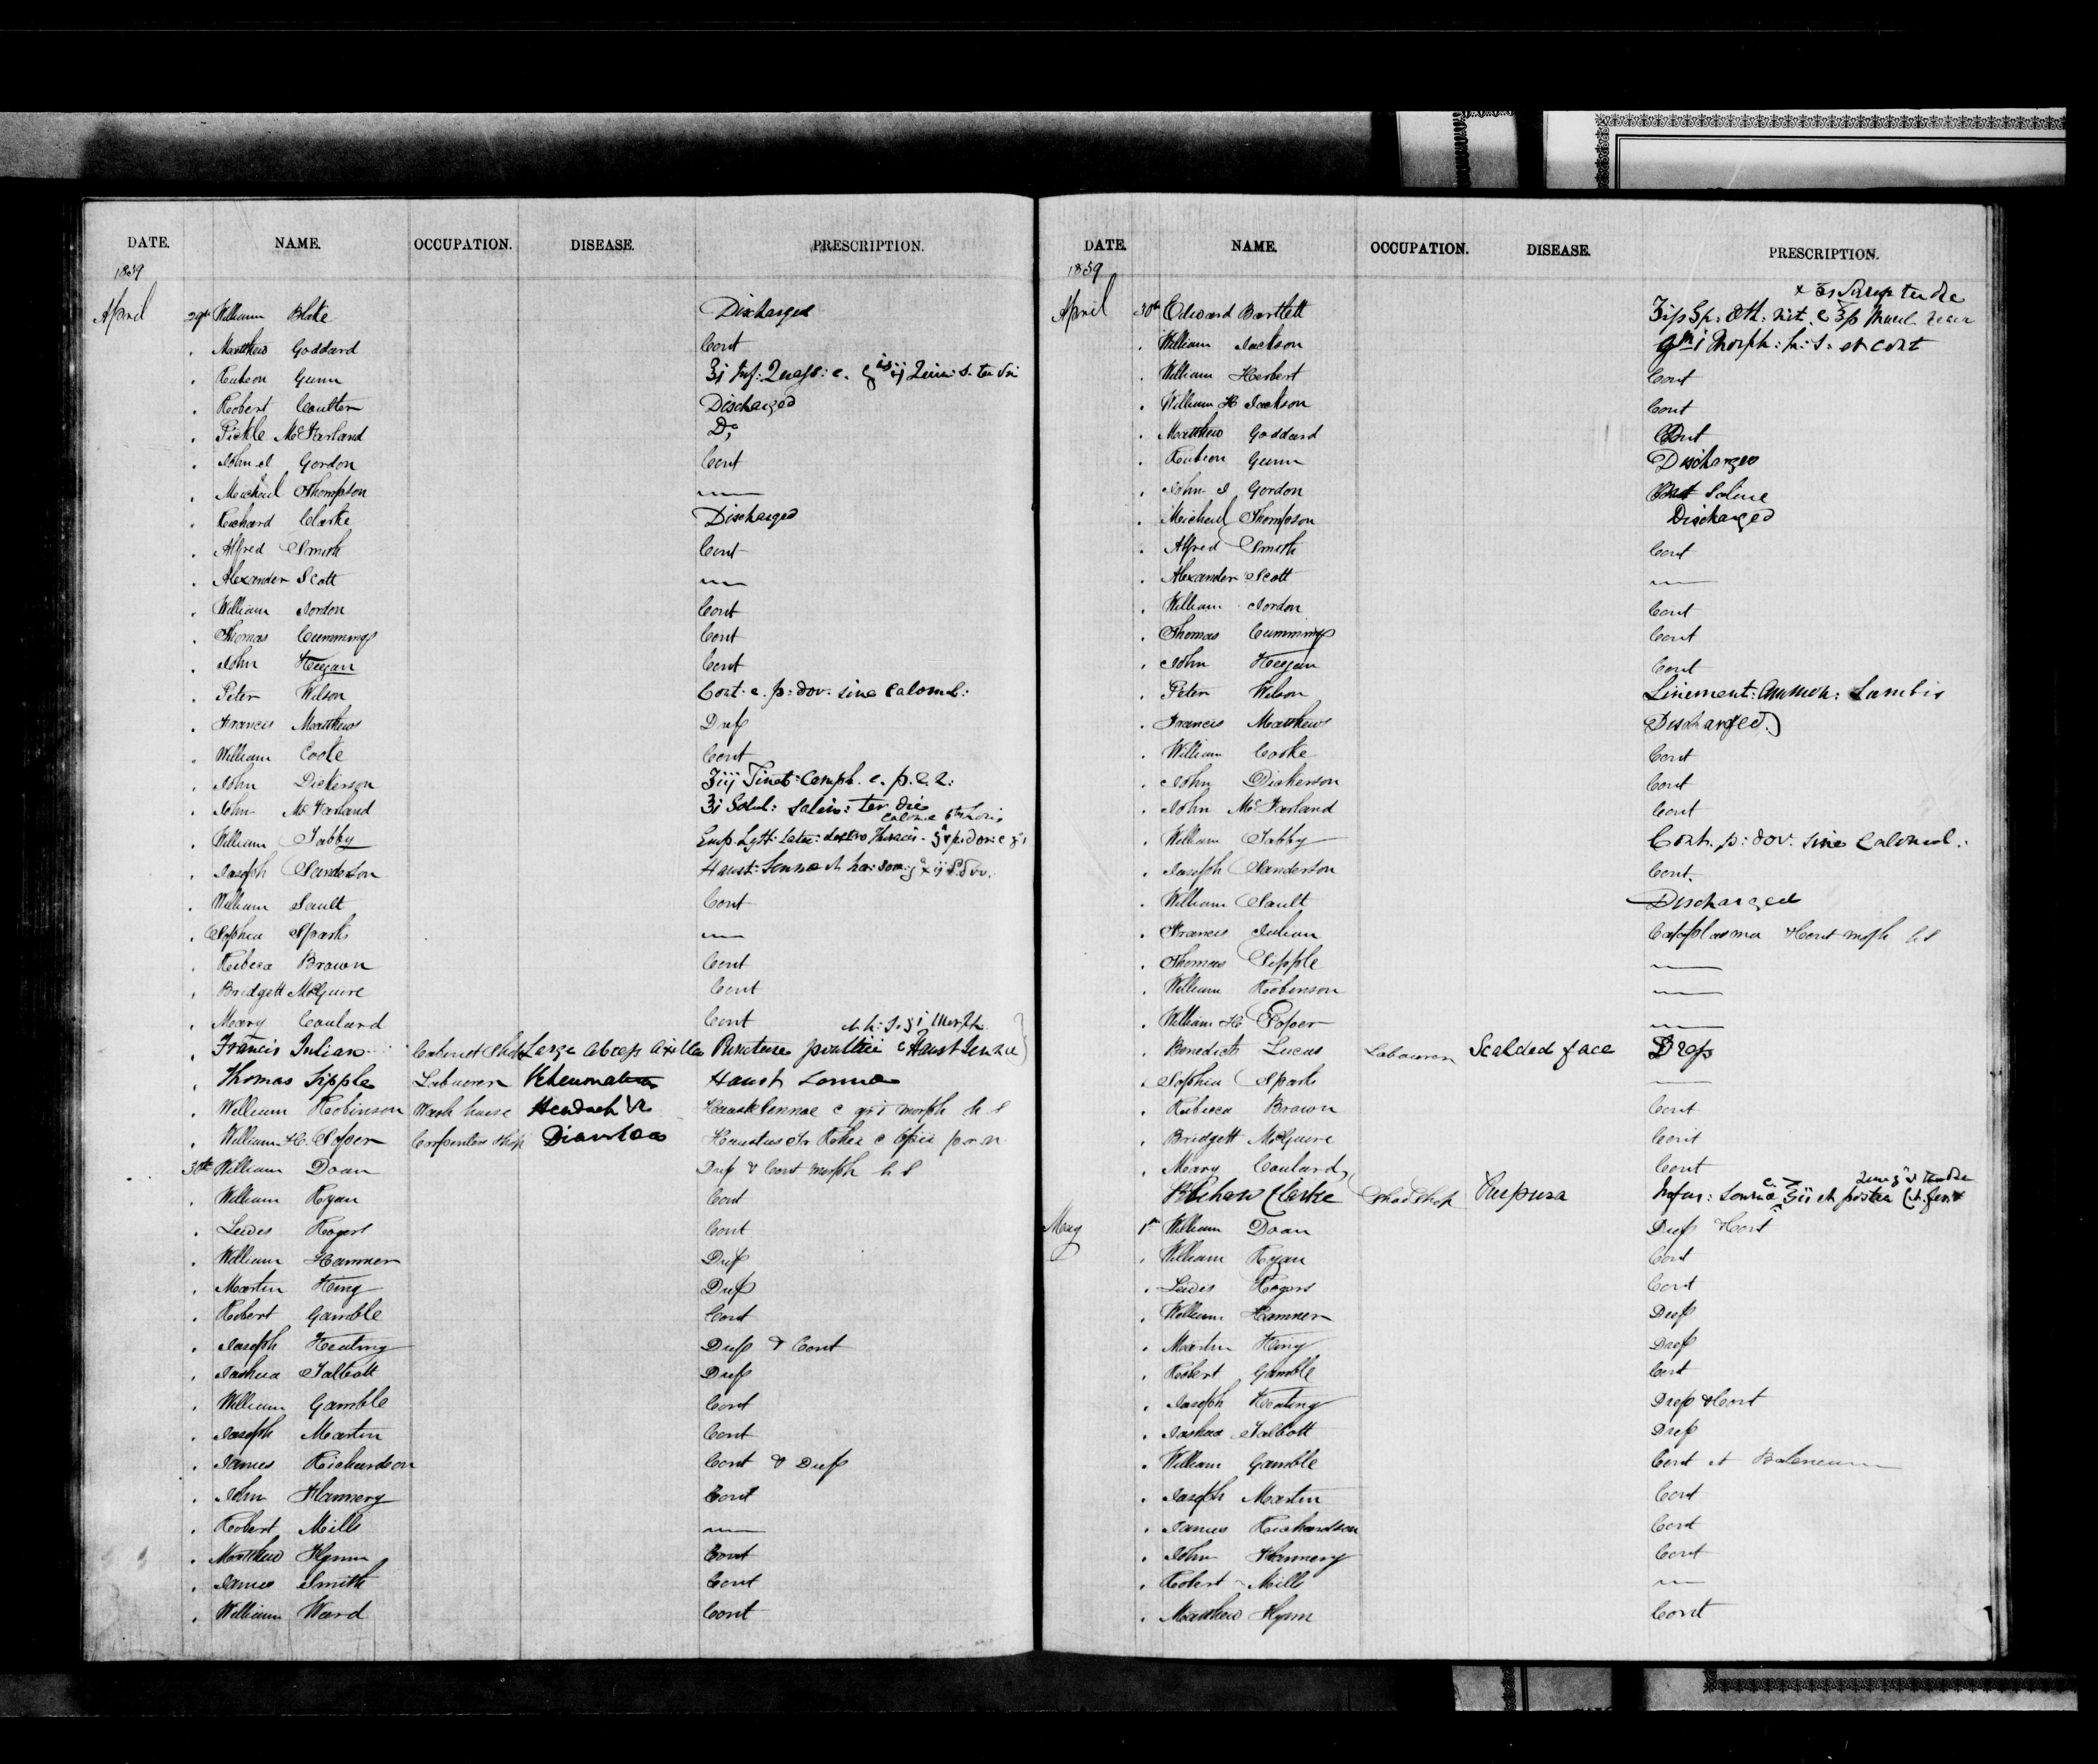 DATE. NAME. OCCUPATION. DISEASE. PRESCRIPTION.
1859
April 29th William Blake Discharged
. Matthew Goddard Cont
. Reubeon Gunn
. Robert Coulter Discharged
. Pickle McFarland Do
. John I Gordon Cont
. Micheal Thompson —
. Richard Clarke Discharged
. Alfred Smith Cont
. Alexander Scott —
. William Jordon Cont
. Thomas Cummings Cont
. John Keegan Cont
. Peter Wilson Cont. c. p: dov. sine Calomel:
. Francis Matthews Dress
. William Cooke Cont
. John Dickerson
. John McFarland ʒi Solul: Salin: ter die
. William Tabby
. Joseph Sanderson
. William Sault Cont
. Sophia Sparks —
. Rebeca Brown Cont
. Bridgett McGuire Cont
. Mary Coulard Cont
. Francis Julian Cabinet Shop Large abcess axilla
. Thomas Sipple Labourer Rheumatism Haust Sennae
. William Robinson Wash house Headach Haust Sennae c gr i morph h s
. William H. Soper Carpenters Shop Diarrhoea
30th William Doan Dress & Cont morph h s
. William Ryan Cont
. Lewis Rogers Cont
. William Hammer Dress
. Martin King Dress
. Robert Gamble Cont
. Joseph Keating Dress & Cont
. Joshua Talbott Dress
. William Gamble Cont
. Joseph Martin Cont
. James Richardson Cont & Dress
. John Flannery Cont
. Robert Mills —
. Matthew Flynn Cont
. James Smith Cont
. William Ward Cont
DATE. NAME. OCCUPATION. DISEASE. PRESCRIPTION.
1859
April 30th Edward Bartlett
. William Jackson
. William Herbert Cont
. William H Jackson Cont
. Matthew Goddard Cont
. Reubeon Gunn Discharged
. John I Gordon Cont Saline
. Micheal Thompson Discharged
. Alfred Smith Cont
. Alexander Scott —
. William Jordon Cont
. Thomas Cummings Cont
. John Keegan Cont
. Peter Wilson Liniment: Ammon: Lumbis
. Francis Matthews Discharged.
. William Cooke Cont
. John Dickerson Cont
. John McFarland Cont
. William Tabby Cont. p: dov. sine Calomel.
. Joseph Sanderson Cont.
. William Sault Discharged
. Francis Julian Cataplasma & Cont morph h s
. Thomas Sipple —
. William Robinson —
. William H Soper —
. Benedict Lucas Labourer Scalded face Dress
. Sophia Sparks —
. Rebeca Brown Cont
. Bridgett McGuire Cont
. Mary Coulard Cont
Richard Clarke Shoe Shop Purpura
May 1st William Doan Dress & Cont
. William Ryan Cont
. Lewis Rogers Cont
. William Hammer Dress
. Martin King Dress
. Robert Gamble Cont
. Joseph Keating Dress & Cont
. Joshua Talbott Dress
. William Gamble Cont et Balneum
. Joseph Martin Cont
. James Richardson Cont
. John Flannery Cont
. Robert Mills —
. Matthew Flynn Cont